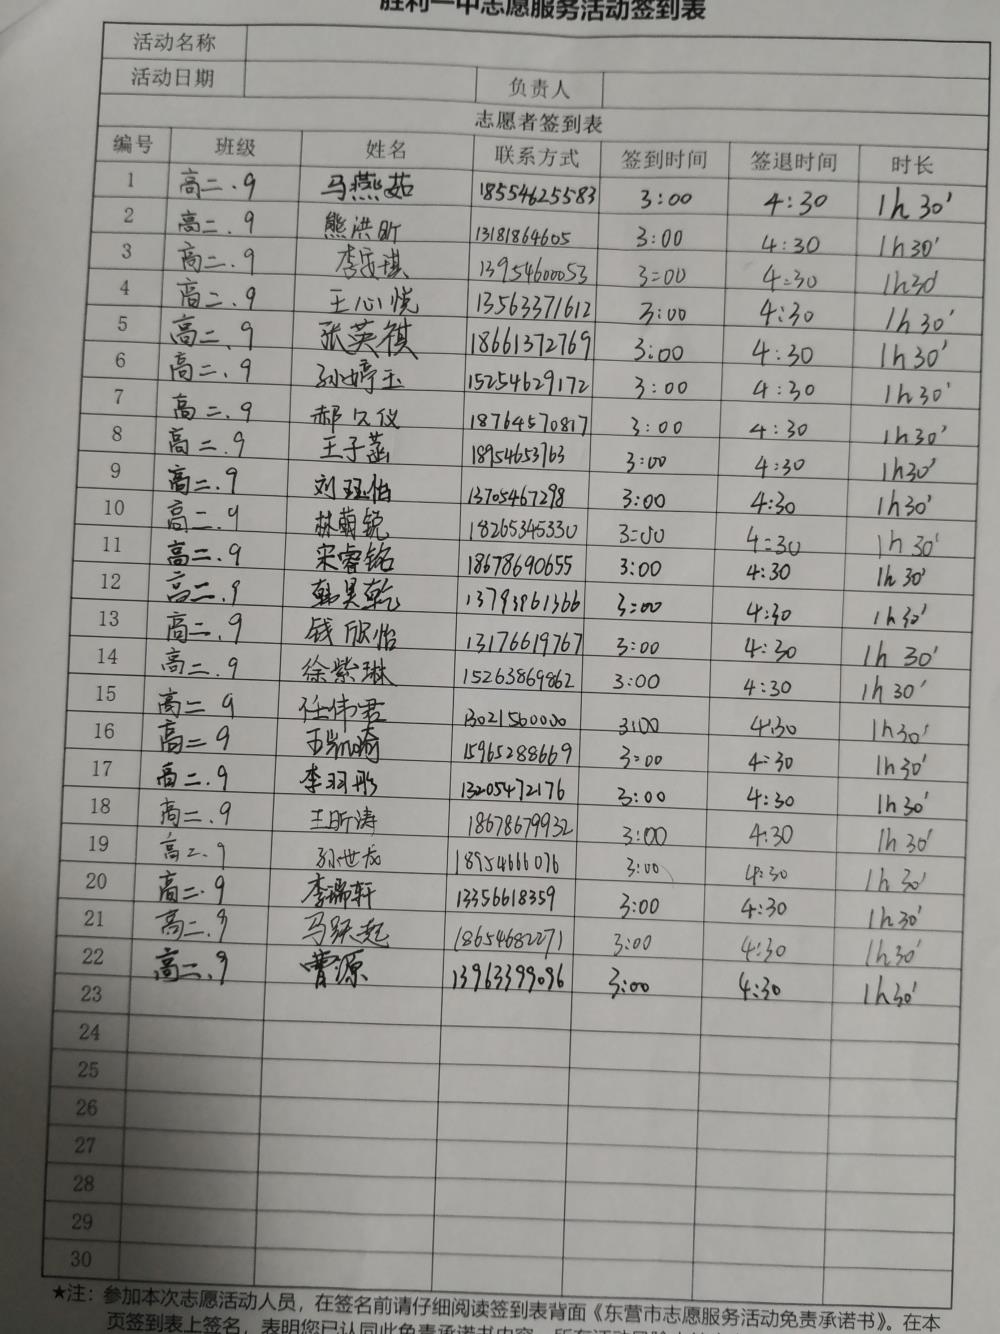 胜利一中志愿服务活动签到表
活动名称
活动日期 负责人
志愿者签到表
编号 班级 姓名 联系方式 签到时间 签退时间 时长
1 高二.9 马燕茹 18554625583 3:00 4:30 1h30'
2 高二.9 熊洪昕 13181864605 3:00 4:30 1h30'
3 高二.9 李安琪 13954600053 3:00 4:30 1h30'
4 高二.9 王心悦 13563371612 3:00 4:30 1h30'
5 高二.9 张英祺 18661372769 3:00 4:30 1h30'
6 高二.9 孙婷玉 15254629172 3:00 4:30 1h30'
7 高二.9 郝久仪 18764570817 3:00 4:30 1h30'
8 高二.9 王子菡 18954653763 3:00 4:30 1h30'
9 高二.9 刘珏伯 13705467298 3:00 4:30 1h30'
10 高二.9 林蔚锐 18265345330 3:00 4:30 1h30'
11 高二.9 宋睿铭 18678690655 3:00 4:30 1h30'
12 高二.9 韩昊乾 13793861366 3:00 4:30 1h30'
13 高二.9 钱欣怡 13176619767 3:00 4:30 1h30'
14 高二.9 徐紫琳 15263869862 3:00 4:30 1h30'
15 高二 9 任伟君 13021560000 3:00 4:30 1h30'
16 高二 9 王凯琦 15965288669 3:00 4:30 1h30'
17 高二.9 李羽彤 13205472176 3:00 4:30 1h30'
18 高二.9 王昕涛 18678679932 3:00 4:30 1h30'
19 高二.9 孙世龙 18954666076 3:00 4:30 1h30'
20 高二.9 李瑞轩 13356618359 3:00 4:30 1h30'
21 高二.9 马跃起 18654682271 3:00 4:30 1h30'
22 高二.9 曹源 13963399096 3:00 4:30 1h30'
23
24
25
26
27
28
29
30
★注：参加本次志愿活动人员，在签名前请仔细阅读签到表背面《东营市志愿服务活动免责承诺书》。在本
页签到表上签名，表明您已认同此免责承诺书内容